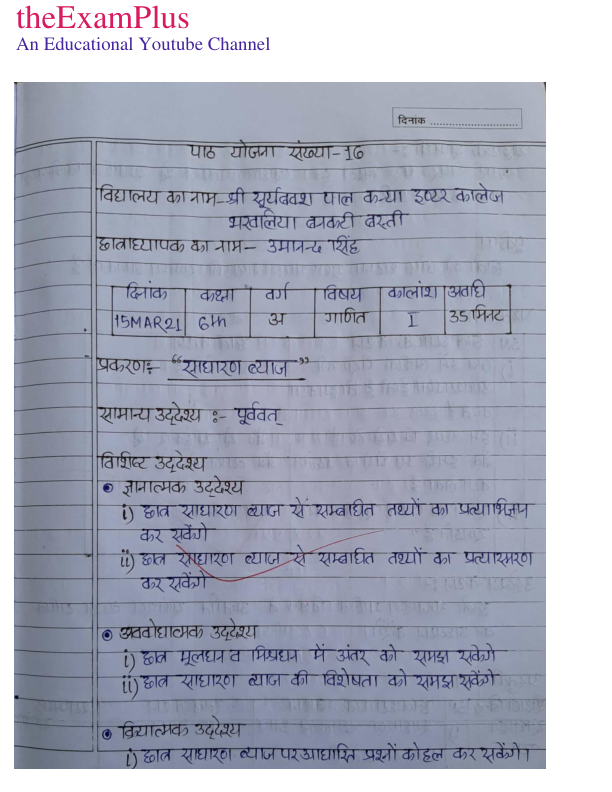 theExamPlus
An Educational Youtube Channel
दिनांक ............................
पाठ योजना संख्या-16
विद्यालय का नाम-श्री सूर्यबक्श पाल कन्या इण्टर कालेज
बनकटी बस्ती
छात्राध्यापक का नाम- उमानन्द सिंह
दिनांक कक्षा वर्ग विषय कालांश अवधि
15MAR21 6th अ गणित I 35 मिनट
प्रकरण:- "साधारण ब्याज"
सामान्य उद्देश्य :- पूर्ववत्
विशिष्ट उद्देश्य
ज्ञानात्मक उद्देश्य
i) छात्र साधारण ब्याज सें सम्बाधित तथ्यों का प्रत्याभिज्ञान
कर सकेंगे
ii) छात्र साधारण ब्याज से सम्बाधित तथ्यों का प्रत्यास्मरण
कर सकेंगे
अवबोधात्मक उद्देश्य
i) छात्र मूलधन व मिश्रधन में अंतर को समझ सकेगे
ii) छात्र साधारण ब्याज की विशेषता को समझ सकेंगे
क्रियात्मक उद्देश्य
i) छात्र साधारण ब्याज पर आधारित प्रश्नों को हल कर सकेंगे।